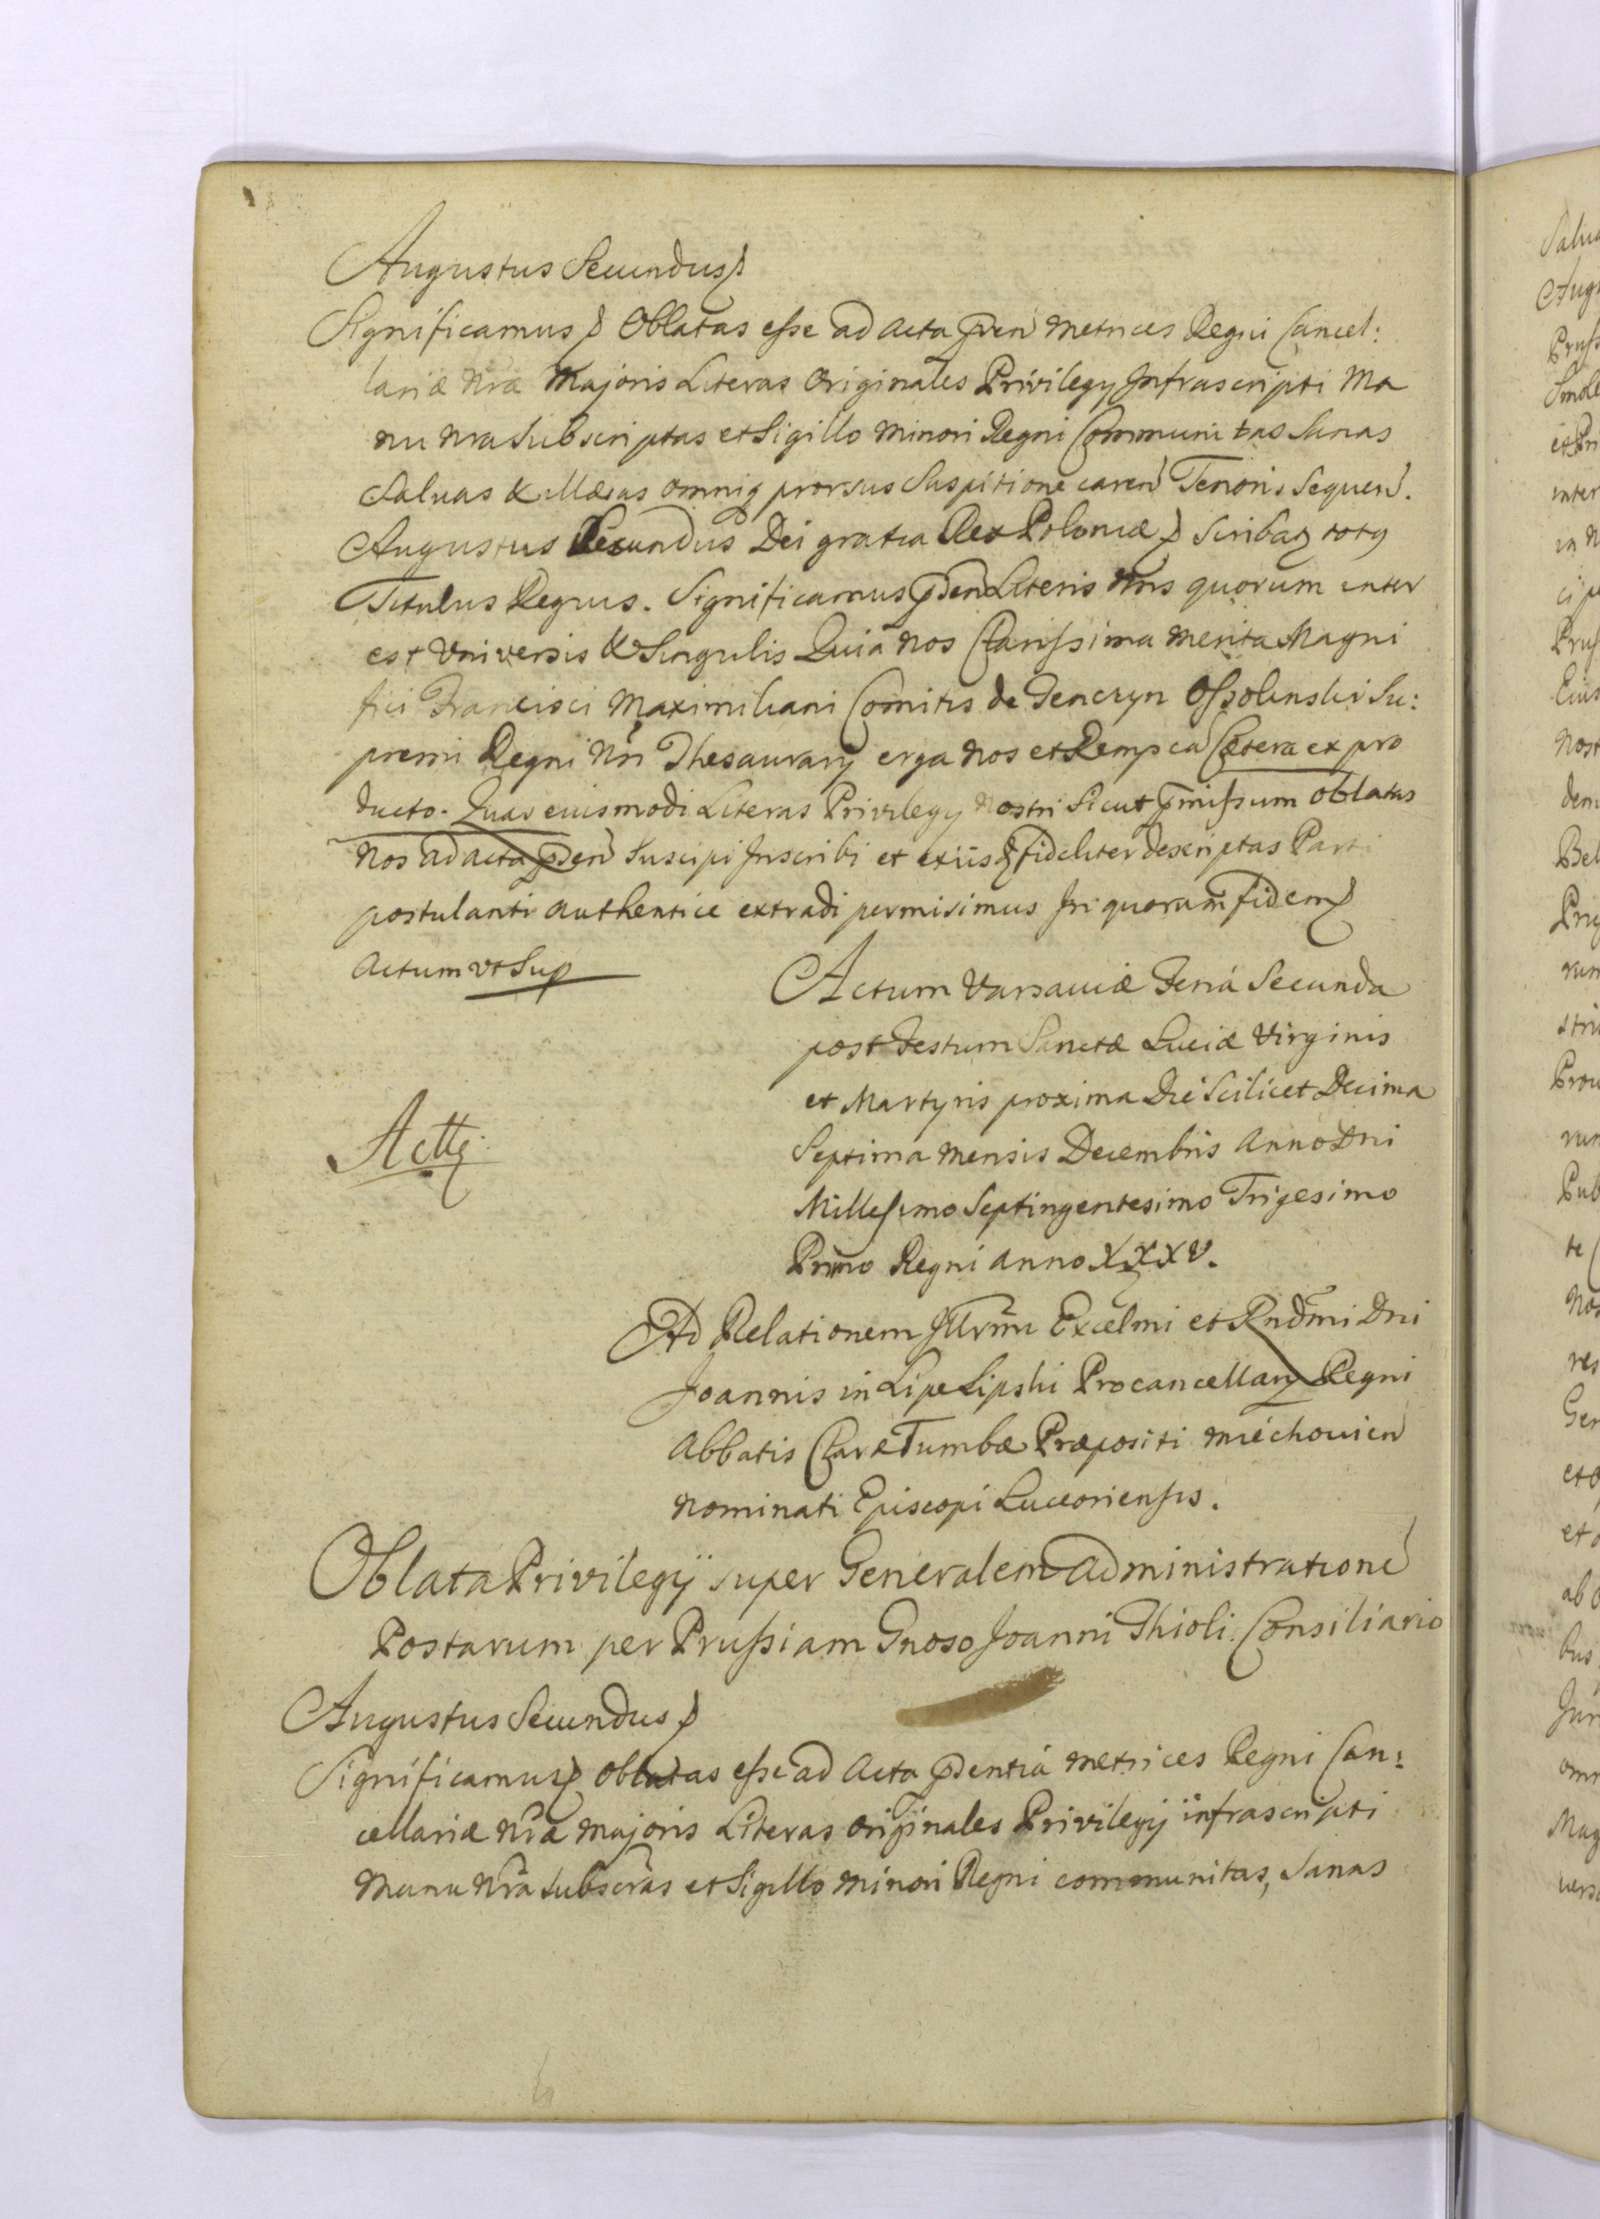 Augustus Secundus
Significamus Oblatas esse ad Acta pñen Metrices Regni Cancel:
lariæ Nræ Majoris Literas Originales Privilegy Infrascripti Ma
nu Nra Subscriptas et Sigillo Minori Regni Communitas Sanas
Salvas & Illæsas omniq prorsus Suspitione caren Tenoris Sequen.
Augustus Secundus Dei gratia Rex Poloniæ Scribaz totq
Titulus Regius. Significamus pñen Literis Nris quorum inter
est Universis & Singulis Quia Nos Clarissima Merita Magni
fici Francisci Maximiliani Comitis de Tenczyn Ossolinski Su:
premi Regni Nri Thesaurarij erga Nos et Remp ea Cætera ex pro
ducto. Quas eiusmodi Literas Privilegy Nostri Sicut pmissum oblatas
Nos ad acta pñen Suscipi Inscribi et exiisq fideliter descriptas Parti
postulanti authentice extradi permisimus In quorum fidem
Actum ut Sup
Actum Varsaviæ Feriá Secunda
post Festum Sanctæ Luciæ Virginis
et Martyris proxima Die Scilicet Decima
Septima Mensis Decembris Anno Dni
Millesimo Septingentesimo Trigesimo
Primo Regni anno XXXV.
Ad Relationem Illrmi Excelmi et Rndmi Dni
Joannis in Lipe Lipski Procancellarij Regni
Abbatis Claræ Tumbæ Præpositi Miechovien
Nominati Episcopi Luceoriensis.
Oblata Privilegij super Generalem administratione
Postarum per Prussiam Gnoso Joanni Thioli Consiliario
Augustus Secundus
Significamus oblatas esse ad Acta pñentia Metrices Regni Can:
cellariæ Nræ Majoris Literas originales Privilegij infrascripti
Manu Nra Subscras et Sigillo Minori Regni communitas, Sanas